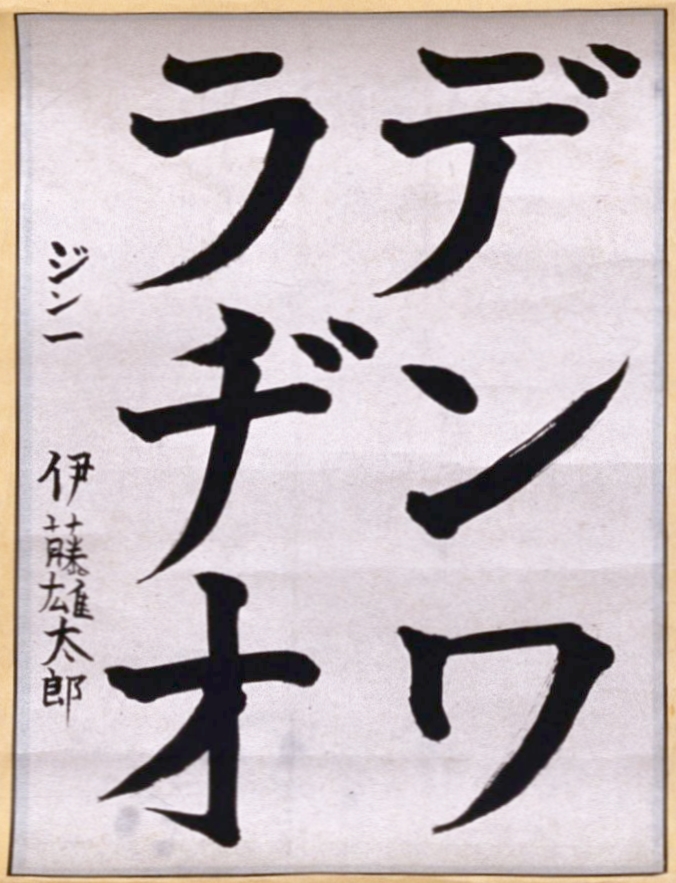 デンワ
ラヂオ
ジン一 伊藤雄太郎